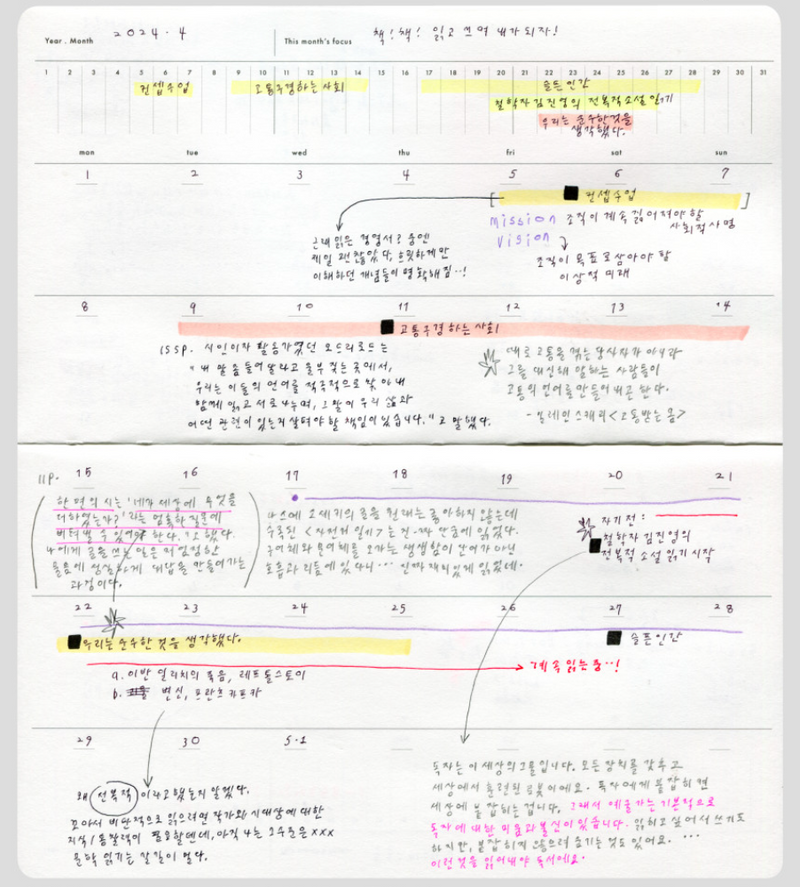 Year . Month 2024 · 4 This month's focus 책! 책! 읽고 쓰며 내가 되자!
1 2 3 4 5 6 7 8 9 10 11 12 13 14 15 16 17 18 19 20 21 22 23 24 25 26 27 28 29 30 31
컨셉수업 고통구경하는 사회 슬픈 인간
철학자 김진영의 전복적 소설 읽기
우리는 순수한 것을
생각했다.
mon tue wed thu fri sat sun
1 2 3 4 5 6 7
컨셉수업
mission 조직이 계속 짊어져야 할
사회적 사명
vision
조직이 목표로 삼아야 할
이상적 미래
근래 읽은 경영서? 중엔
제일 괜찮았다. 흐릿하게만
이해하던 개념들이 명확해짐··!
8 9 10 11 12 13 14
고통구경하는 사회
155p. 시인이자 활동가였던 오드리 로드는
"내 말 좀 들어달라고 울부짖는 곳에서,
우리는 이들의 언어를 적극적으로 찾아내
함께 읽고 서로 나누며, 그 말이 우리 삶과
어떤 관련이 있는지 살펴야 할 책임이 있습니다."고 말했다.
때로 고통을 겪는 당사자가 아니라
그를 대신해 말하는 사람들이
고통의 언어를 만들어내곤 한다.
- 일레인 스캐리 <고통받는 몸>
11p. 15 16 17 18 19 20 21
한 편의 시는 '네가 세상에 무엇을
더하였는가?'라는 엄혹한 질문에
버텨낼 수 있어야 한다.고 했다.
나에게 글을 쓰는 일은 저 엄정한
물음에 성실하게 대답을 만들어가는
과정이다.
소세키의 글을 원래는 좋아하지 않는데
수록된 <자전거 일기>는 진-짜 단숨에 읽었다.
구어체와 문어체를 오가는 생생함이 단어가 아닌
호흡과 리듬에 있다니··· 진짜 재미있게 읽었네.
자기 전 :
철학자 김진영의
전복적 소설 읽기 시작
22 23 24 25 26 27 28
우리는 순수한 것을 생각했다.
슬픈 인간
계속 읽는 중··!
a. 이반 일리치의 죽음, 레프 톨스토이
b. 변신, 프란츠 카프카
29 30 5·1
왜 전복적 이라고 했는지 알겠다.
꼬아서 비판적으로 읽으려면 작가와 시대상에 대한
지식/통찰력이 필요할텐데, 아직 나는 그 수준은 xxx
문학 읽기는 갈 길이 멀다.
독자는 이 세상의 그물입니다. 모든 장치를 갖추고
세상에서 훈련된 로봇이에요. 독자에게 붙잡히면
세상에 붙잡히는 겁니다. 그래서 예술가는 기본적으로
독자에 대한 미움과 불신이 있습니다. 읽히고 싶어서 쓰기도
하지만, 붙잡히지 않으려 숨기는 것도 있어요. ···
이런 것을 읽어내야 독서예요.